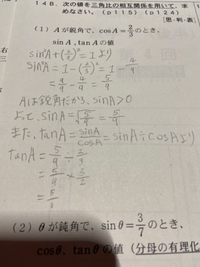 148. 次の値を三角比の相互関係を用いて、求
めなさい。(p115) (p124)
[思・判・表
(1) Aが鋭角で、cosA=2/3のとき、
sinA, tanAの値
sin²A+(2/3)²=1より
sin²A=1-(2/3)²=1-4/9
=9/9-4/9=5/9
Aは鋭角だから、sinA>0
よって、sinA=√5/9=5/9
また、tanA=sinA/cosA=sinA÷cosAより
tanA=5/9÷2/3
=5/9×3/2
=5/6
(2) θが鋭角で、sinθ=3/7のとき、
cosθ、tanθの値(分母の有理化